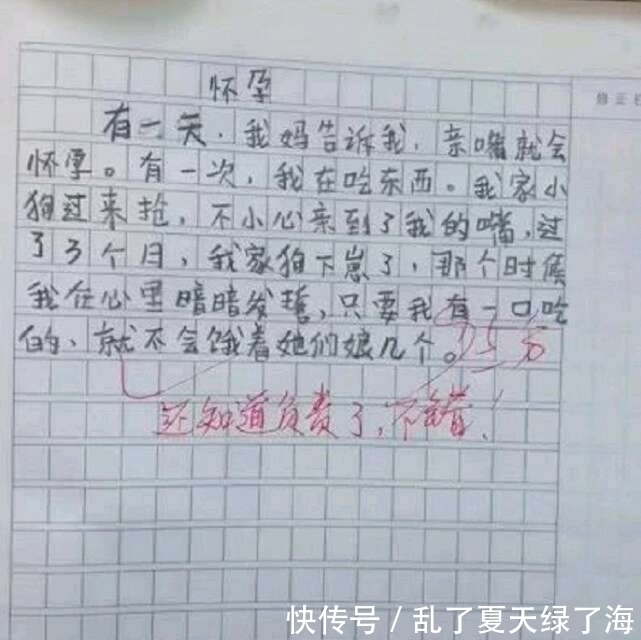 怀孕
有一天，我妈告诉我，亲嘴就会
怀孕。有一次，我在吃东西。我家小
狗过来抢，不小心亲到了我的嘴，过
了3个月，我家狗下崽了，那个时候
我在心里暗暗发誓，只要我有一口吃
的、就不会饿着她们娘几个。
还知道负责了，不错！
快传号/乱了夏天绿了海